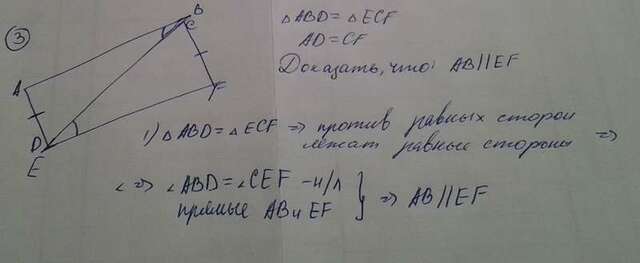 3
B
C
A
F
D
E
△ABD = △ECF
AD = CF
Доказать, что: AB || EF
1) △ABD = △ECF => против равных сторон
лежат равные стороны =>
=> ∠ABD = ∠CEF - н/л
прямые AB и EF } => AB || EF